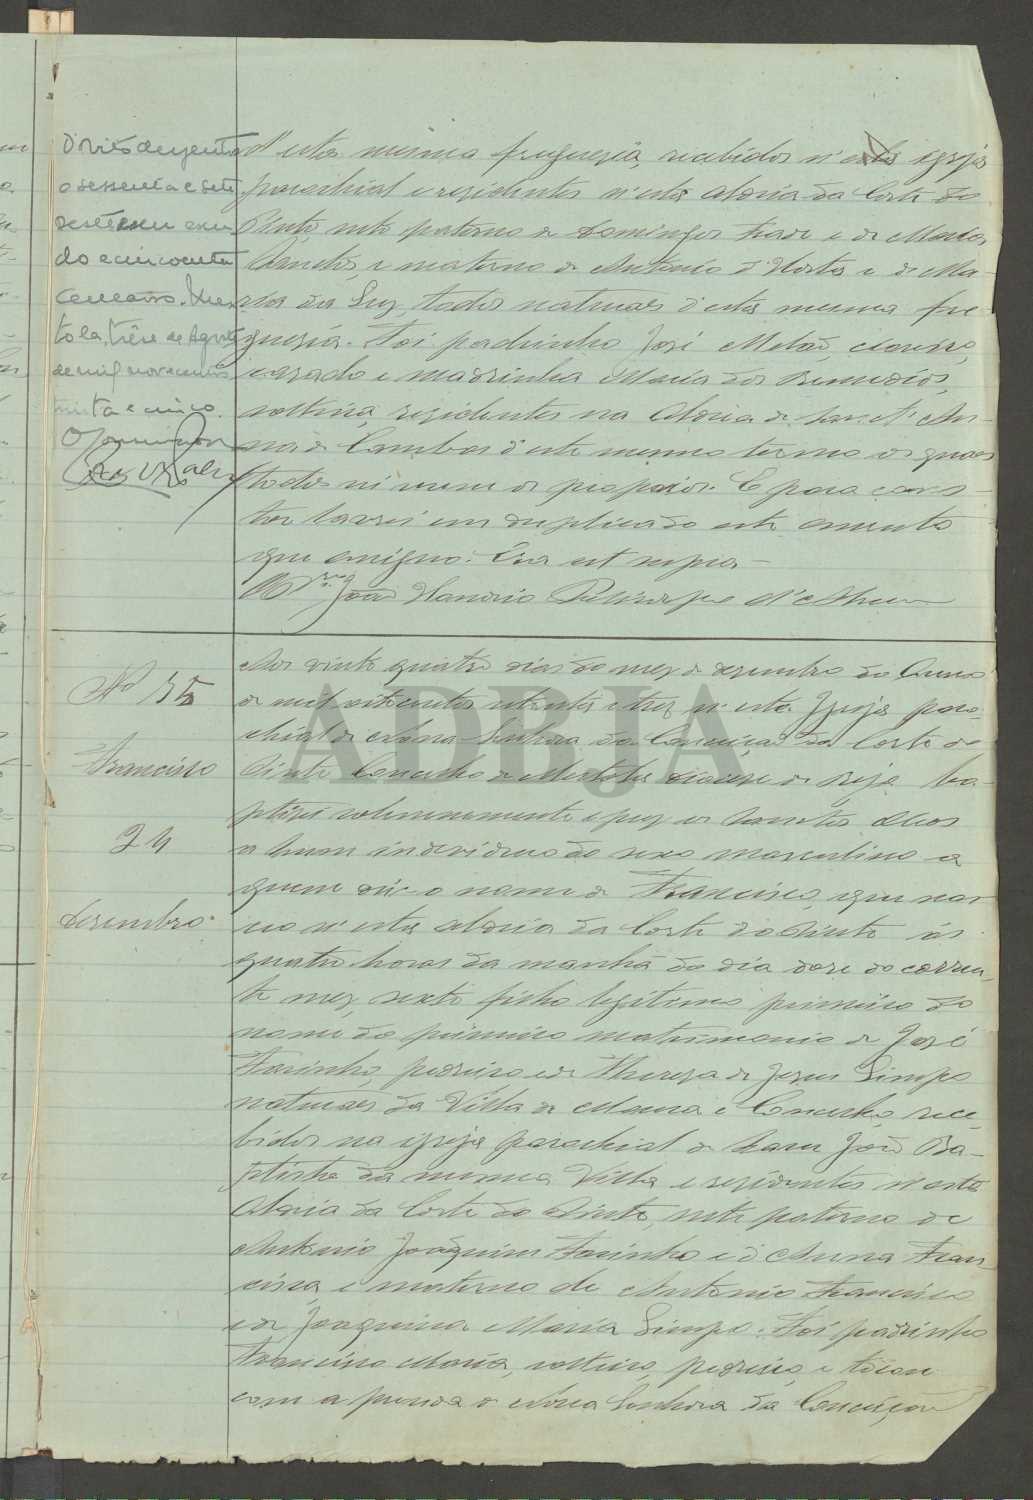 d'esta mesma freguesia, recebidos n'esta igreja
parochial e residentes n'esta Aldeia da Corte do
Pinto, neto paterno de Domingos e de Maria
e materno de Antonio d'Horta e de Ma-
ria da Luz, todos naturaes d'esta mesma fre
guesia. Foi padrinho José
casado e madrinha Maria dos Remedios,
solteira, residentes na Aldeia de Sant'An-
na de Cambas d'este mesmo termo os quaes
todos sei serem os proprios. E para cons-
tar lavrei em duplicado este assento
que assigno. Era ut supra -
João d'Abreu
do e cincoenta
tola, trêse de Agosto
de mil novecentos
trinta e cinco.
O
Nº 35
Francisco
24
Desembro
Aos vinte quatro dias do mez de desembro do Anno
de mil oitocentos oitenta e trez n'esta Igreja paro-
chial de Nossa Senhora da Conceição da Corte do
Pinto Concelho de Mertola diocese de Beja ba-
ptizei solemnemente e puz os Santos Oleos
a hum individuo do sexo masculino a
quem dei o nome de Francisco, que nas
ceo n'esta Aldeia da Corte do Pinto ás
quatro horas da manhã do dia dose do corren-
te mez, sexto filho legitimo primeiro do
nome do primeiro matrimonio de José
Farinho, pedreiro e de Thereza de Jesus Limpo
naturaes da Villa de Moura e Concelho, rece-
bidos na igreja parochial de Sam João Ba-
ptista da mesma Villa e residentes n'esta
Aldeia da Corte do Pinto, neto paterno de
Antonio Joaquim Farinho e d'Anna Fran
cisca, e materno de Antonio Francisco
e de Joaquina Maria Limpo. Foi padrinho
Francisco Maria, solteiro, pedreiro, e tocou
com a prenda de Nossa Senhora da Conceição
ADBJA